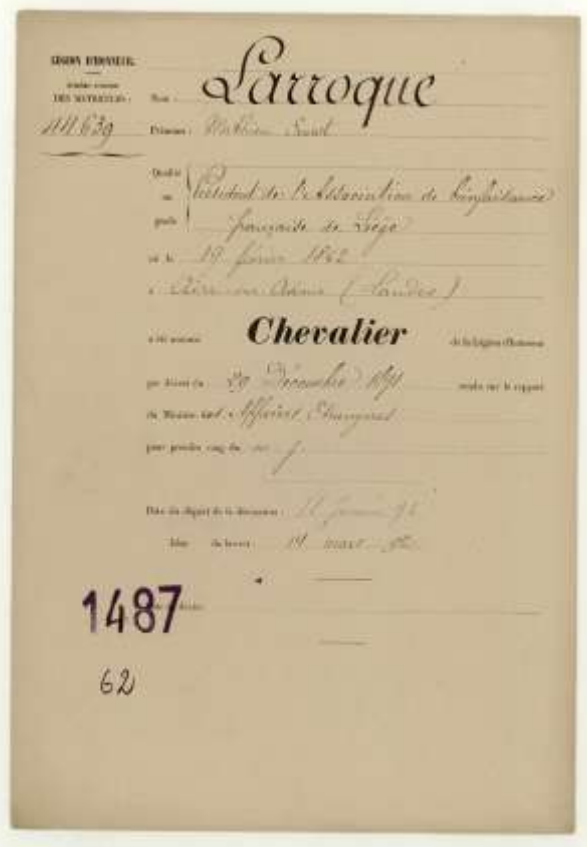 LÉGION D'HONNEUR.
DES MATRICULES :
44.639
Nom : Larroque
Prénoms : Mathieu Ernest
Qualité ou grade
Président de l'Association de bienfaisance
française de Liège
né le 19 février 1842
à Aire sur Adour (Landes)
a été nommé Chevalier de la Légion d'honneur
par décret du 29 Décembre 1891 rendu sur le rapport
du Ministre des Affaires Etrangères
pour prendre rang du
Date du départ de la décoration : janvier 92
Idem du brevet : 19 mars 92
1487
62